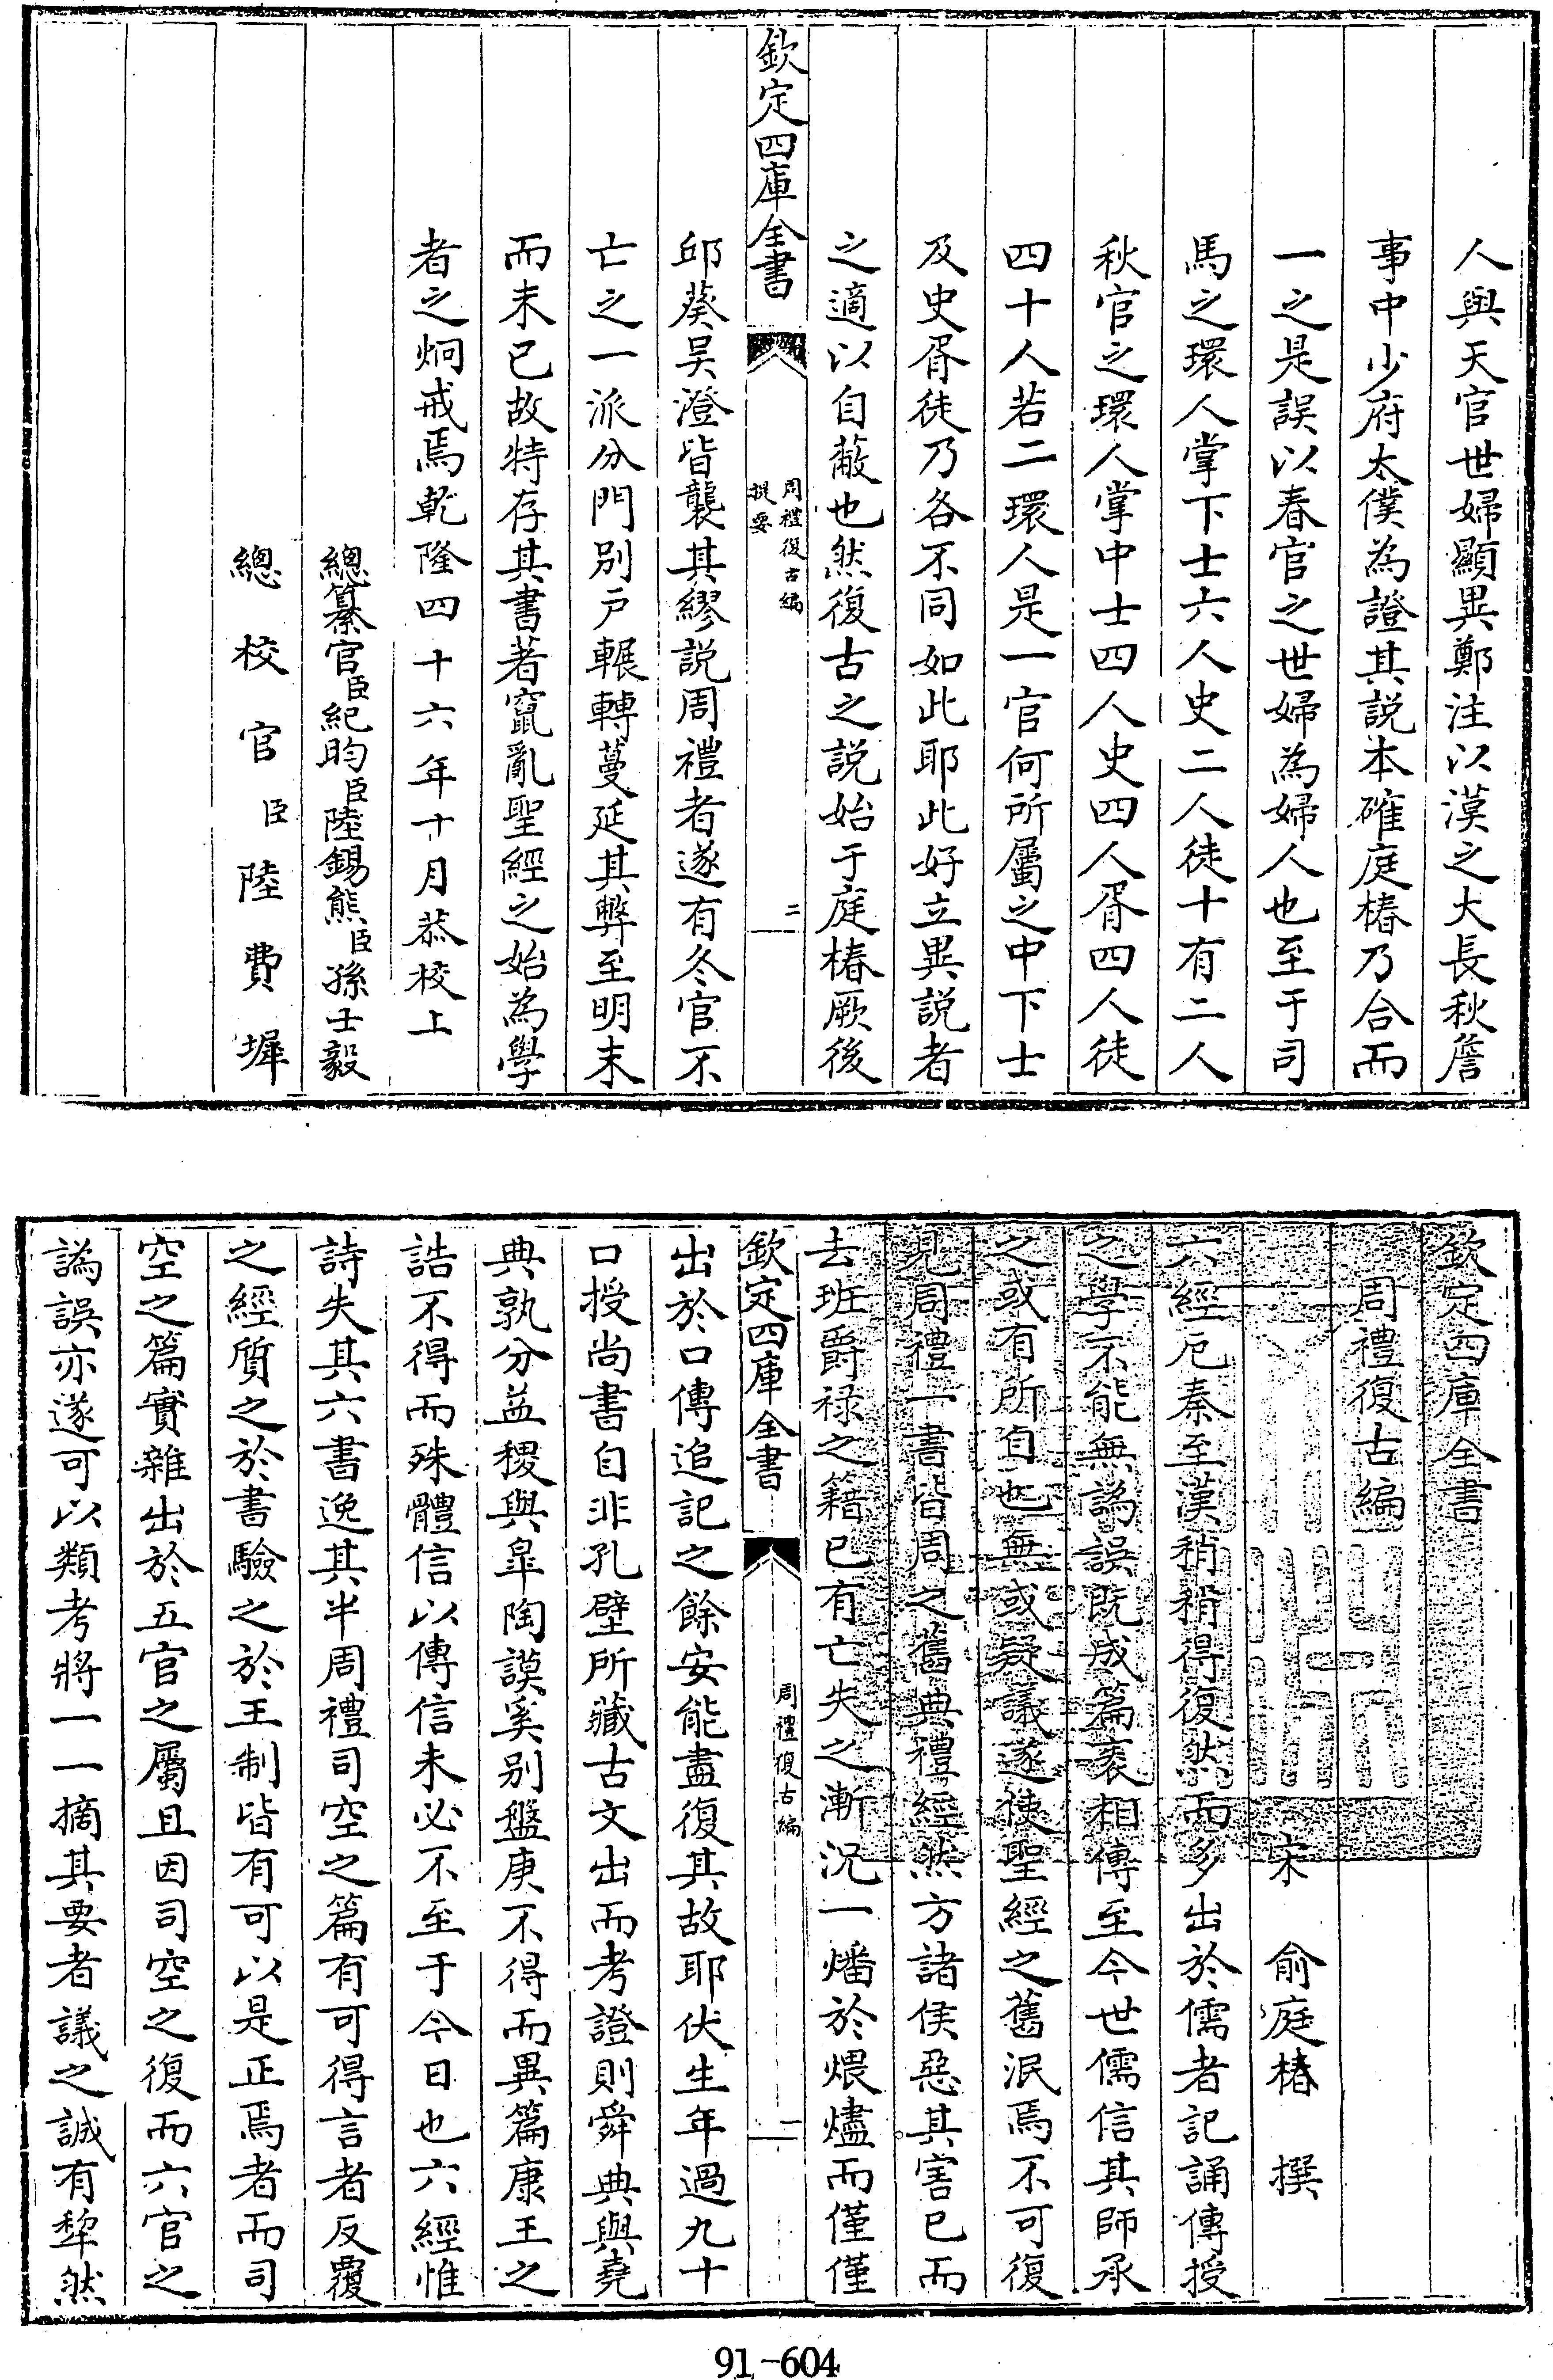 人與天官世婦顯異鄭注以漢之大長秋詹
事中少府太僕為證其説本確庭椿乃合而
一之是誤以春官之世婦為婦人也至于司
馬之環人掌下士六人史二人徒十有二人
秋官之環人掌中士四人史四人胥四人徒
四十人若二環人是一官何所屬之中下士
及史胥徒乃各不同如此耶此好立異説者
之適以自蔽也然復古之説始于庭椿厥後
欽定四庫全書
周禮復古編
提要
二
邱葵吴澄皆襲其繆説周禮者遂有冬官不
亡之一派分門别户輾轉蔓延其弊至明末
而未已故特存其書著竄亂聖經之始為學
者之炯戒焉乾隆四十六年十月恭校上
總纂官臣紀昀臣陸錫熊臣孫士毅
總校官臣陸費墀
欽定四庫全書
周禮復古編
宋 俞庭椿 撰
六經厄秦至漢稍稍得復然而多出於儒者記誦傳授
之學不能無譌誤既成篇袠相傳至今世儒信其師承
之或有所自也無或疑議遂使聖經之舊泯焉不可復
見周禮一書皆周之舊典禮經然方諸侯惡其害已而
去班爵禄之籍已有亡失之漸況一燔於煨燼而僅僅
欽定四庫全書
周禮復古編
一
出於口傳追記之餘安能盡復其故耶伏生年過九十
口授尚書自非孔壁所藏古文出而考證則舜典與堯
典孰分益稷與臯陶謨奚别盤庚不得而異篇康王之
誥不得而殊體信以傳信未必不至于今日也六經惟
詩失其六書逸其半周禮司空之篇有可得言者反覆
之經質之於書驗之於王制皆有可以是正焉者而司
空之篇實雜出於五官之屬且因司空之復而六官之
譌誤亦遂可以類考將一一摘其要者議之誠有犂然
91-604